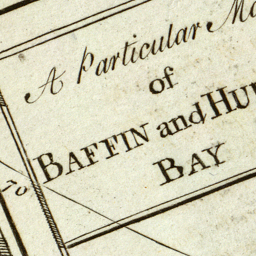 A Particular Ma
of
BAFFIN and HU
BAY
70